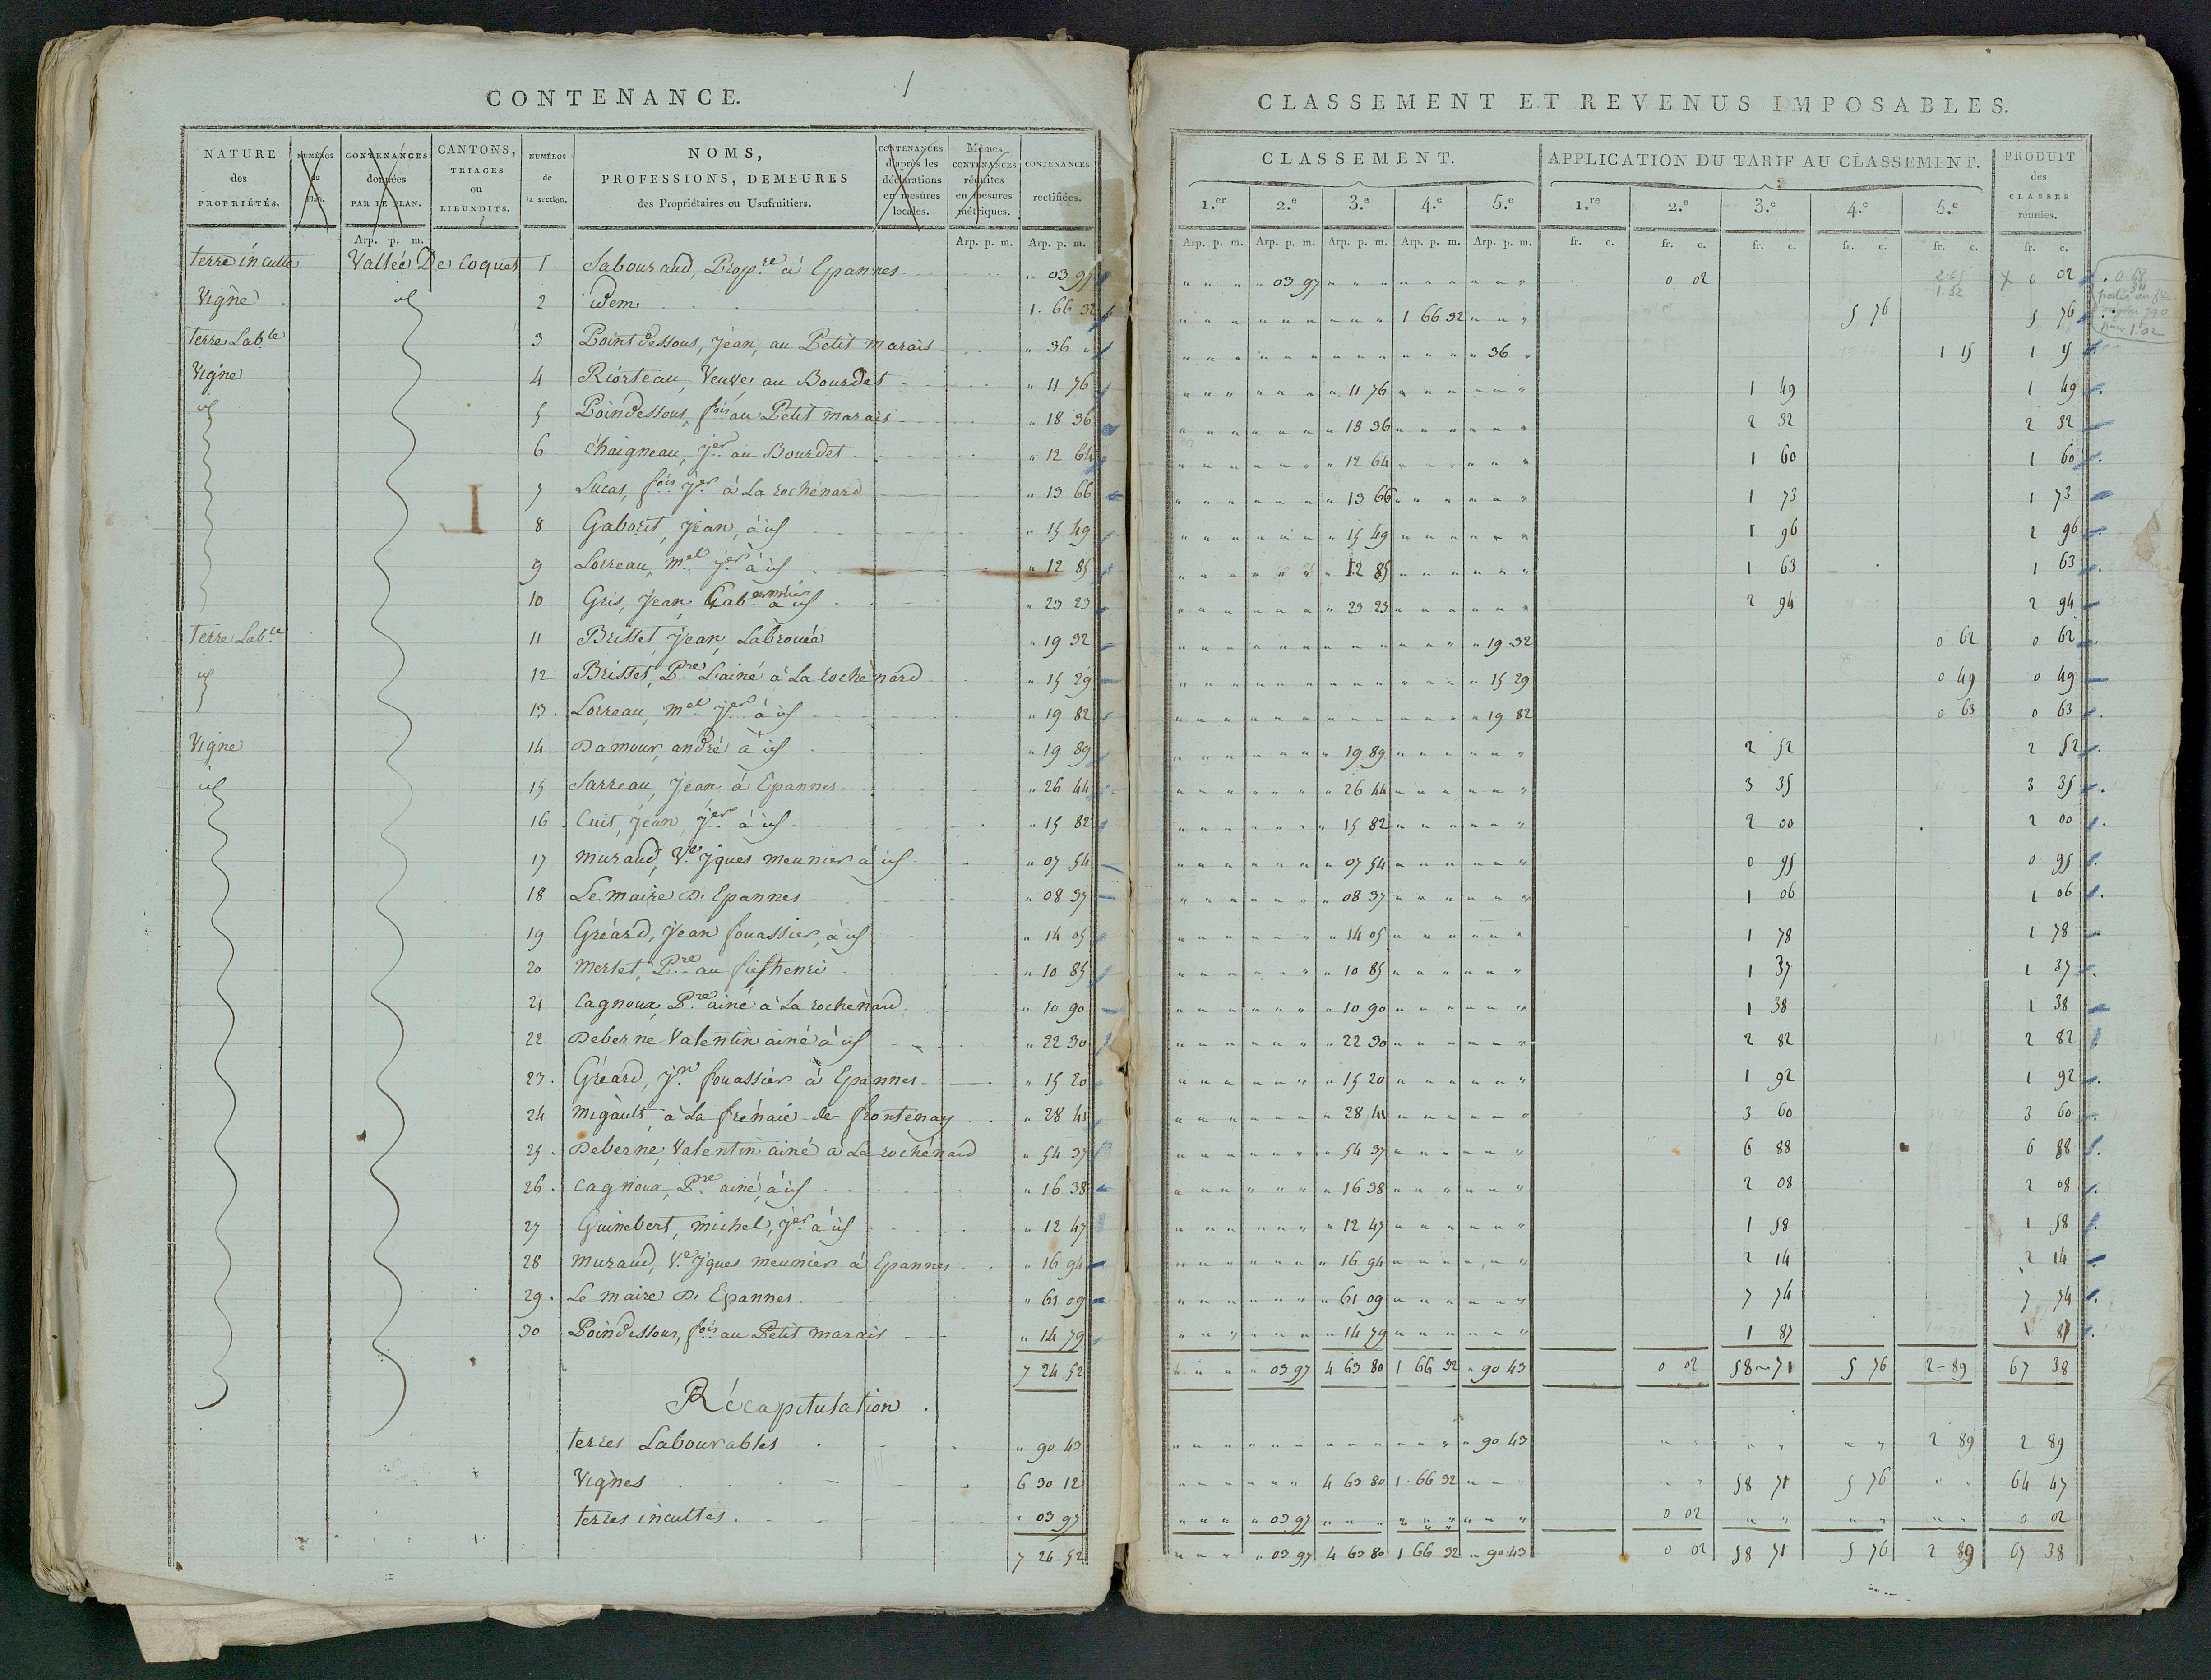 CONTENANCE.
NATURE des PROPRIÉTÉS. NUMÉROS du Plan. CONTENANCES données PAR LE PLAN. CANTONS, TRIAGES ou LIEUXDITS. NUMÉROS de la section. NOMS, PROFESSIONS, DEMEURES des Propriétaires ou Usufruitiers. CONTENANCES d'après les déclarations en mesures locales. Mêmes CONTENANCES réduites en mesures métriques. CONTENANCES rectifiées.
Arp. p. m. Arp. p. m. Arp. p. m.
Terre inculte Vallée De Coquet 1 Sabouraud, Prop.re à Epannes " 03 97
Vigne id 2 idem 1. 66 32
Terre Lab.le 3 Pointdessous, Jean, au Petit marais " 36 "
Vigne 4 Riorteau, Veuve au Bourdet " 11 76
id 5 Poindessous, fois au Petit marais " 18 36
6 Chaigneau, j.er au Bourdet " 12 64
7 Lucas, fois j.er à La rochenard " 13 66
8 Gaborit, Jean, à id " 15 49
9 Lorreau, m.el j.er à id " 12 85
10 Gris, Jean à id " 23 23
Terre Lab.le 11 Brisset, Jean, Labrouée " 19 32
id 12 Brisset, P.re L'ainé à La rochenard " 15 29
13. Lorreau, m.el j.er à id " 19 82
Vigne 14 Damour, andré à id " 19 89
id 15 Sarreau, Jean à Epannes " 26 44
16 Cuit, jean j.er à id " 15 82
17 Muraud, V.e Jques meunier à id " 07 54
18 Le maire D. Epannes " 08 37
19 Gréard, Jean fouassier, à id " 14 05
20 Mertet, P.re au fiefhenri " 10 85
21 Cagnoux, P.re ainé à La rochenard " 10 90
22 Deberne Valentin ainé à id " 22 30
23. Gréard, j.n fouassier à Epannes " 15 20
24 Migault, à La frénaie de frontenay " 28 41
25. Deberne, Valentin ainé à La rochénard " 54 37
26. Cagnoux, P.re ainé, à id " 16 38
27 Guinebert, michel, j.er à id " 12 47
28 Muraud, V.e Jques meunier à Epannes " 16 94
29. Le maire D. Epannes " 61 09
30 Poindessous, fois au Petit marais " 14 79
7 24 52
Récapitulation
Terres Labourables " 90 43
Vignes 6 30 12
Terres incultes " 03 97
7 24 52
CLASSEMENT ET REVENUS IMPOSABLES.
CLASSEMENT. APPLICATION DU TARIF AU CLASSEMENT. PRODUIT des CLASSES réunies.
1.er 2.e 3.e 4.e 5.e 1.re 2.e 3.e 4.e 5.e
Arp. p. m. Arp. p. m. Arp. p. m. Arp. p. m. Arp. p. m. fr. c. fr. c. fr. c. fr. c. fr. c. fr. c.
" 03 97 0 02 0 02
1 66 32 5 76 5 76
" 36 " 1 15 1 15
" 11 76 1 49 1 49
" 18 36 2 32 2 32
" 12 64 1 60 1 60
" 13 66 1 73 1 73
" 15 49 1 96 1 96
" 12 85 1 63 1 63
" 23 23 2 94 2 94
" 19 32 0 62 0 62
" 15 29 0 49 0 49
" 19 82 0 63 0 63
" 19 89 2 52 2 52
" 26 44 3 35 3 35
" 15 82 2 00 2 00
" 07 54 0 95 0 95
" 08 37 1 06 1 06
" 14 05 1 78 1 78
" 10 85 1 37 1 37
" 10 90 1 38 1 38
" 22 30 2 82 2 82
" 15 20 1 92 1 92
" 28 41 3 60 3 60
" 54 37 6 88 6 88
" 16 38 2 08 2 08
" 12 47 1 58 1 58
" 16 94 2 14 2 14
" 61 09 7 74 7 74
" 14 79 1 87 1 87
" 03 97 4 63 80 1 66 32 " 90 43 0 02 58 71 5 76 2 89 67 38
" 90 43 2 89 2 89
4 63 80 1. 66 32 58 71 5 76 64 47
" 03 97 0 02 0 02
" 03 97 4 63 80 1 66 32 " 90 43 0 02 58 71 5 76 2 89 67 38